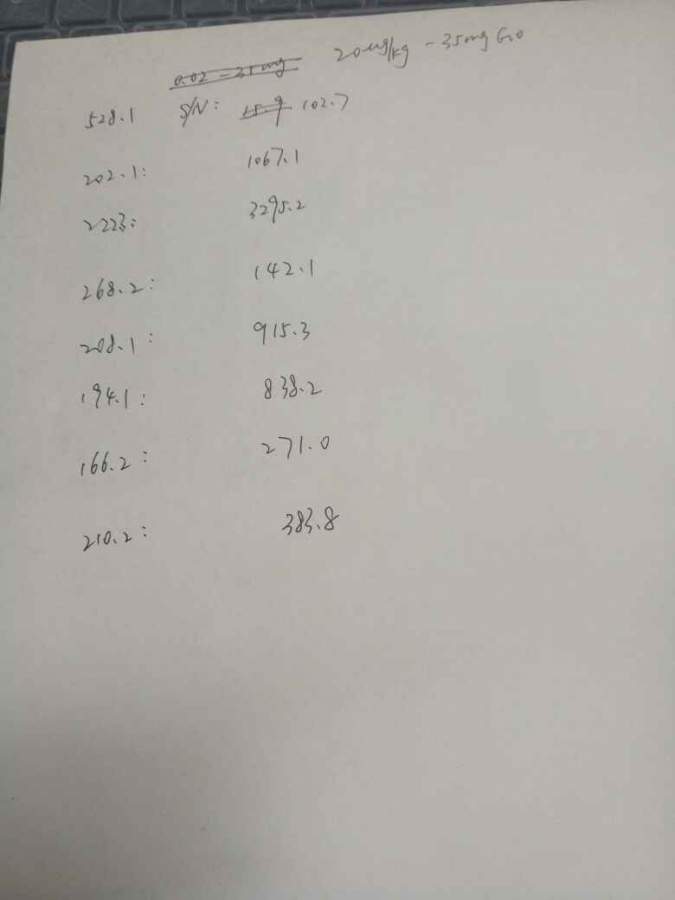 20ug/kg - 35mg Go
528.1 S/N: 102.7
202.1: 1067.1
2223: 3295.2
268.2: 142.1
208.1: 915.3
194.1: 838.2
166.2: 271.0
210.2: 383.8